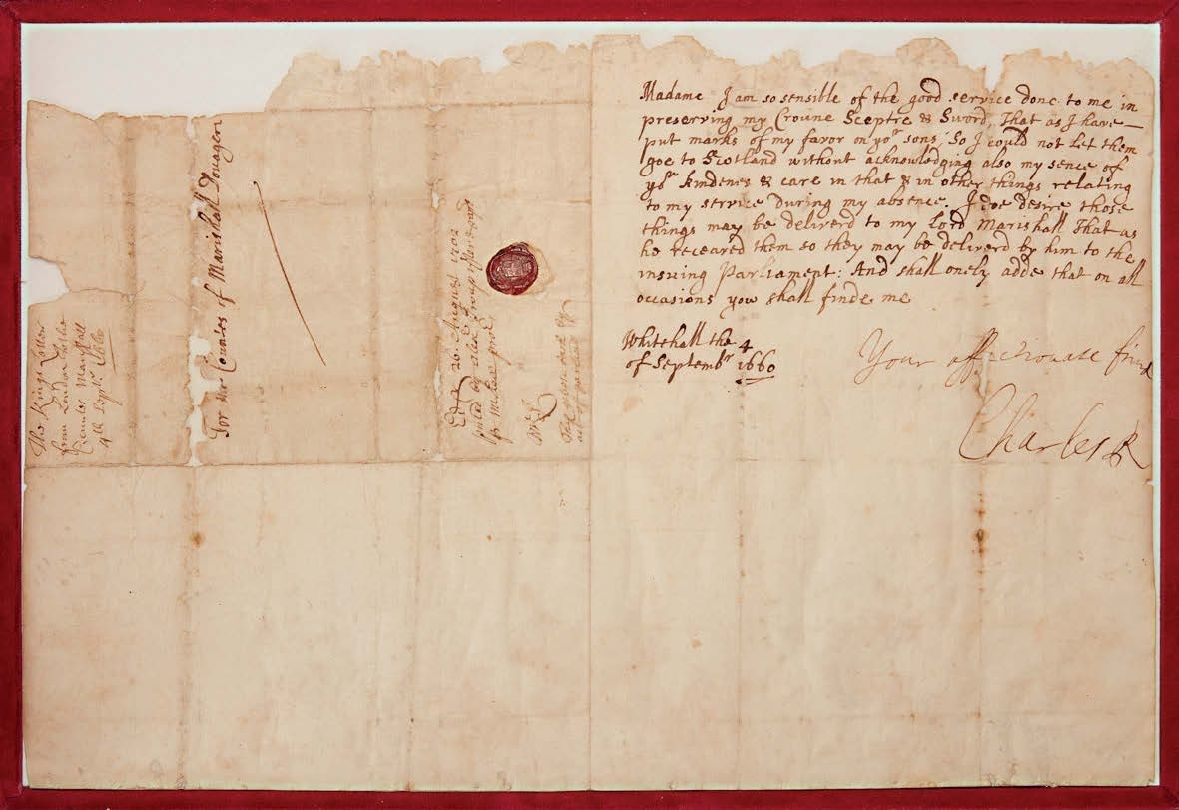 Madame I am so sensible of the good service done to me in
preserving my Croune Sceptre & Sword, That as I have
put marks of my favor on yor sons, So I could not let them
goe to Scotland without acknowledging also my sence of
yor kindenes & care in that & in other things relating
to my service during my absence. I doe desire those
things may be deliverd to my Lord Marishall That as
he receaved them so they may be deliverd by him to the
insuing Parliament: And shall onely adde that on all
occasions yow shall finde me
Whitehall the 4
of Septembr 1660
Your affectionate frind
Charles R
For the Countes of Marishall Douager
The Kings Letter
from London to the
Countes Marshall
4th Septr 1660
Edr 26 August 1702